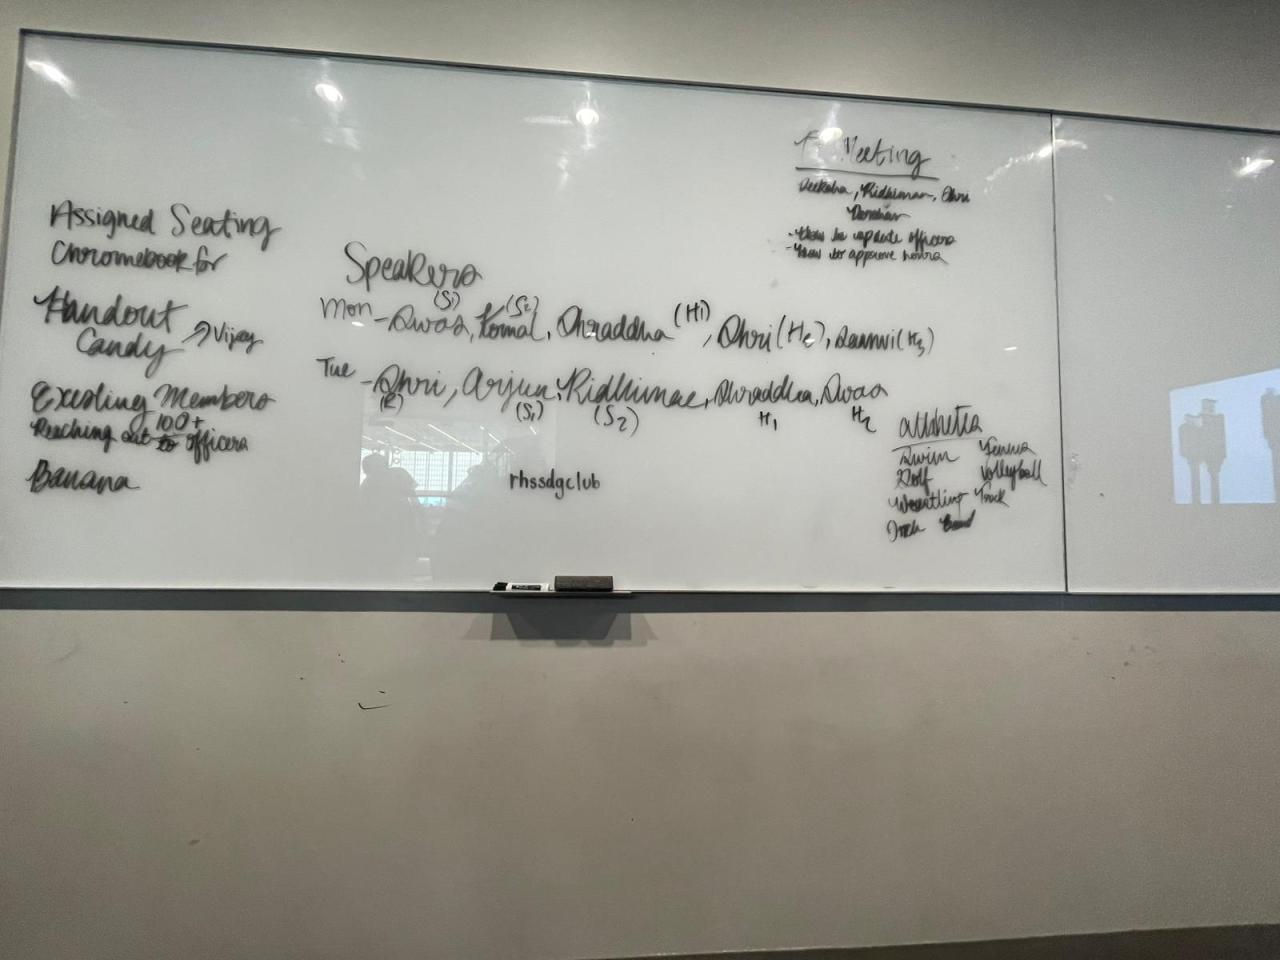 Assigned Seating
Chromebook for
Handout
Candy → Vijay
Existing Members
100+
Reaching out to officers
Banana
Speakers
(S1) (S2) (H1)
Mon - Swas, Komal, Shraddha, Shri (H2), Saanvi (H3)
Tue - Shri, Arjun, Ridhimae, Shraddha, Swas
(R) (S1) (S2) H1 H2
rhssdgclub
Meeting
Deeksha, Ridhimae, Shri
- How to update officers
- How to approve hours
athletes
Swim Tennis
Golf Volleyball
Wrestling Track